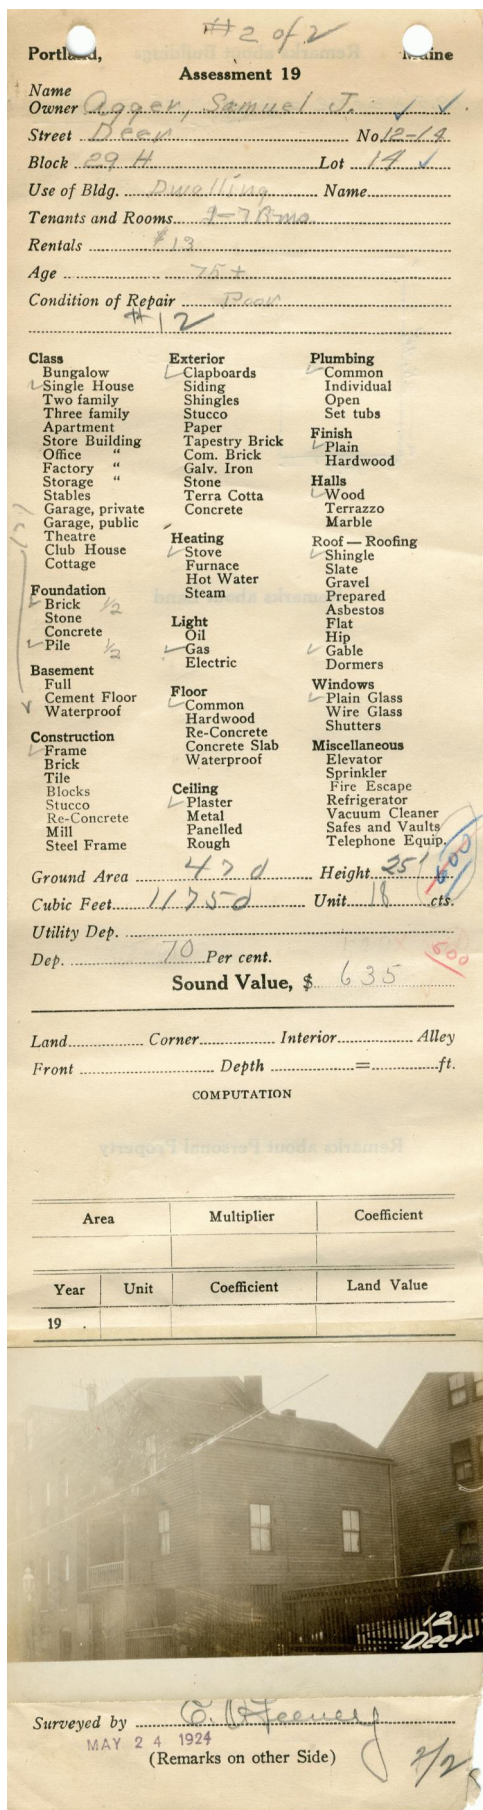 #2 of 2
Portland, Maine
Assessment 19
Name
Owner Agger, Samuel J.
Street Deer No. 12-14
Block 29 H Lot 14
Use of Bldg. Dwelling Name
Tenants and Rooms 9-7 Rms.
Rentals $13
Age 75+
Condition of Repair Poor
#12
Class
Bungalow
Single House
Two family
Three family
Apartment
Store Building
Office "
Factory "
Storage "
Stables
Garage, private
Garage, public
Theatre
Club House
Cottage
Foundation
Brick 1/2
Stone
Concrete
Pile 1/2
Basement
Full
Cement Floor
Waterproof
Construction
Frame
Brick
Tile
Blocks
Stucco
Re-Concrete
Mill
Steel Frame
Exterior
Clapboards
Siding
Shingles
Stucco
Paper
Tapestry Brick
Com. Brick
Galv. Iron
Stone
Terra Cotta
Concrete
Heating
Stove
Furnace
Hot Water
Steam
Light
Oil
Gas
Electric
Floor
Common
Hardwood
Re-Concrete
Concrete Slab
Waterproof
Ceiling
Plaster
Metal
Panelled
Rough
Plumbing
Common
Individual
Open
Set tubs
Finish
Plain
Hardwood
Halls
Wood
Terrazzo
Marble
Roof — Roofing
Shingle
Slate
Gravel
Prepared
Asbestos
Flat
Hip
Gable
Dormers
Windows
Plain Glass
Wire Glass
Shutters
Miscellaneous
Elevator
Sprinkler
Fire Escape
Refrigerator
Vacuum Cleaner
Safes and Vaults
Telephone Equip.
Ground Area 470 Height 25'
Cubic Feet 11750 Unit 18 cts.
Utility Dep.
Dep. 70 Per cent. 600
Sound Value, $ 635
Land Corner Interior Alley
Front Depth = ft.
COMPUTATION
Remarks about Personal Property
Area Multiplier Coefficient
Year Unit Coefficient Land Value
19 .
12
Deer
Surveyed by
MAY 24 1924
(Remarks on other Side)